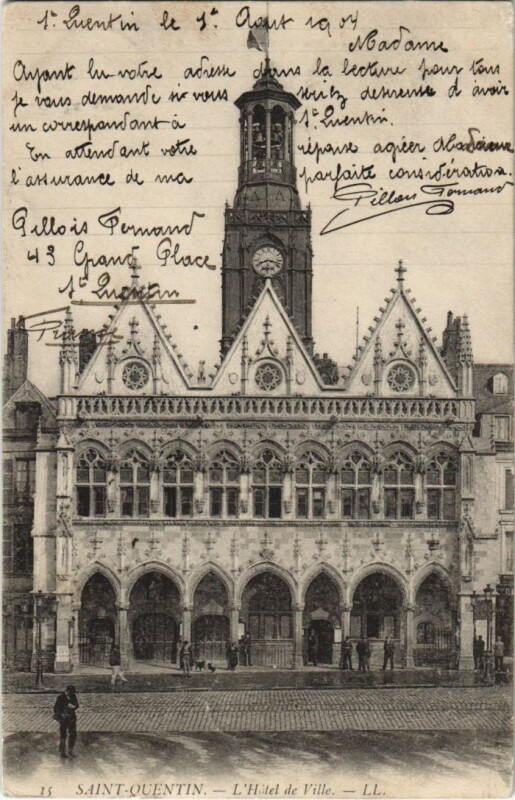 St Quentin le 1r Aout 1904
Madame
Ayant lu votre adresse dans la lecture pour tous
je vous demande si vous seriez desireuse d'avoir
un correspondant à St Quentin.
En attendant votre réponse agréer Madame
l'assurance de ma parfaite considération.
Pillois Fernand
Pillois Fernand
43 Grand Place
St Quentin
France
15 SAINT-QUENTIN. — L'Hôtel de Ville. — LL.